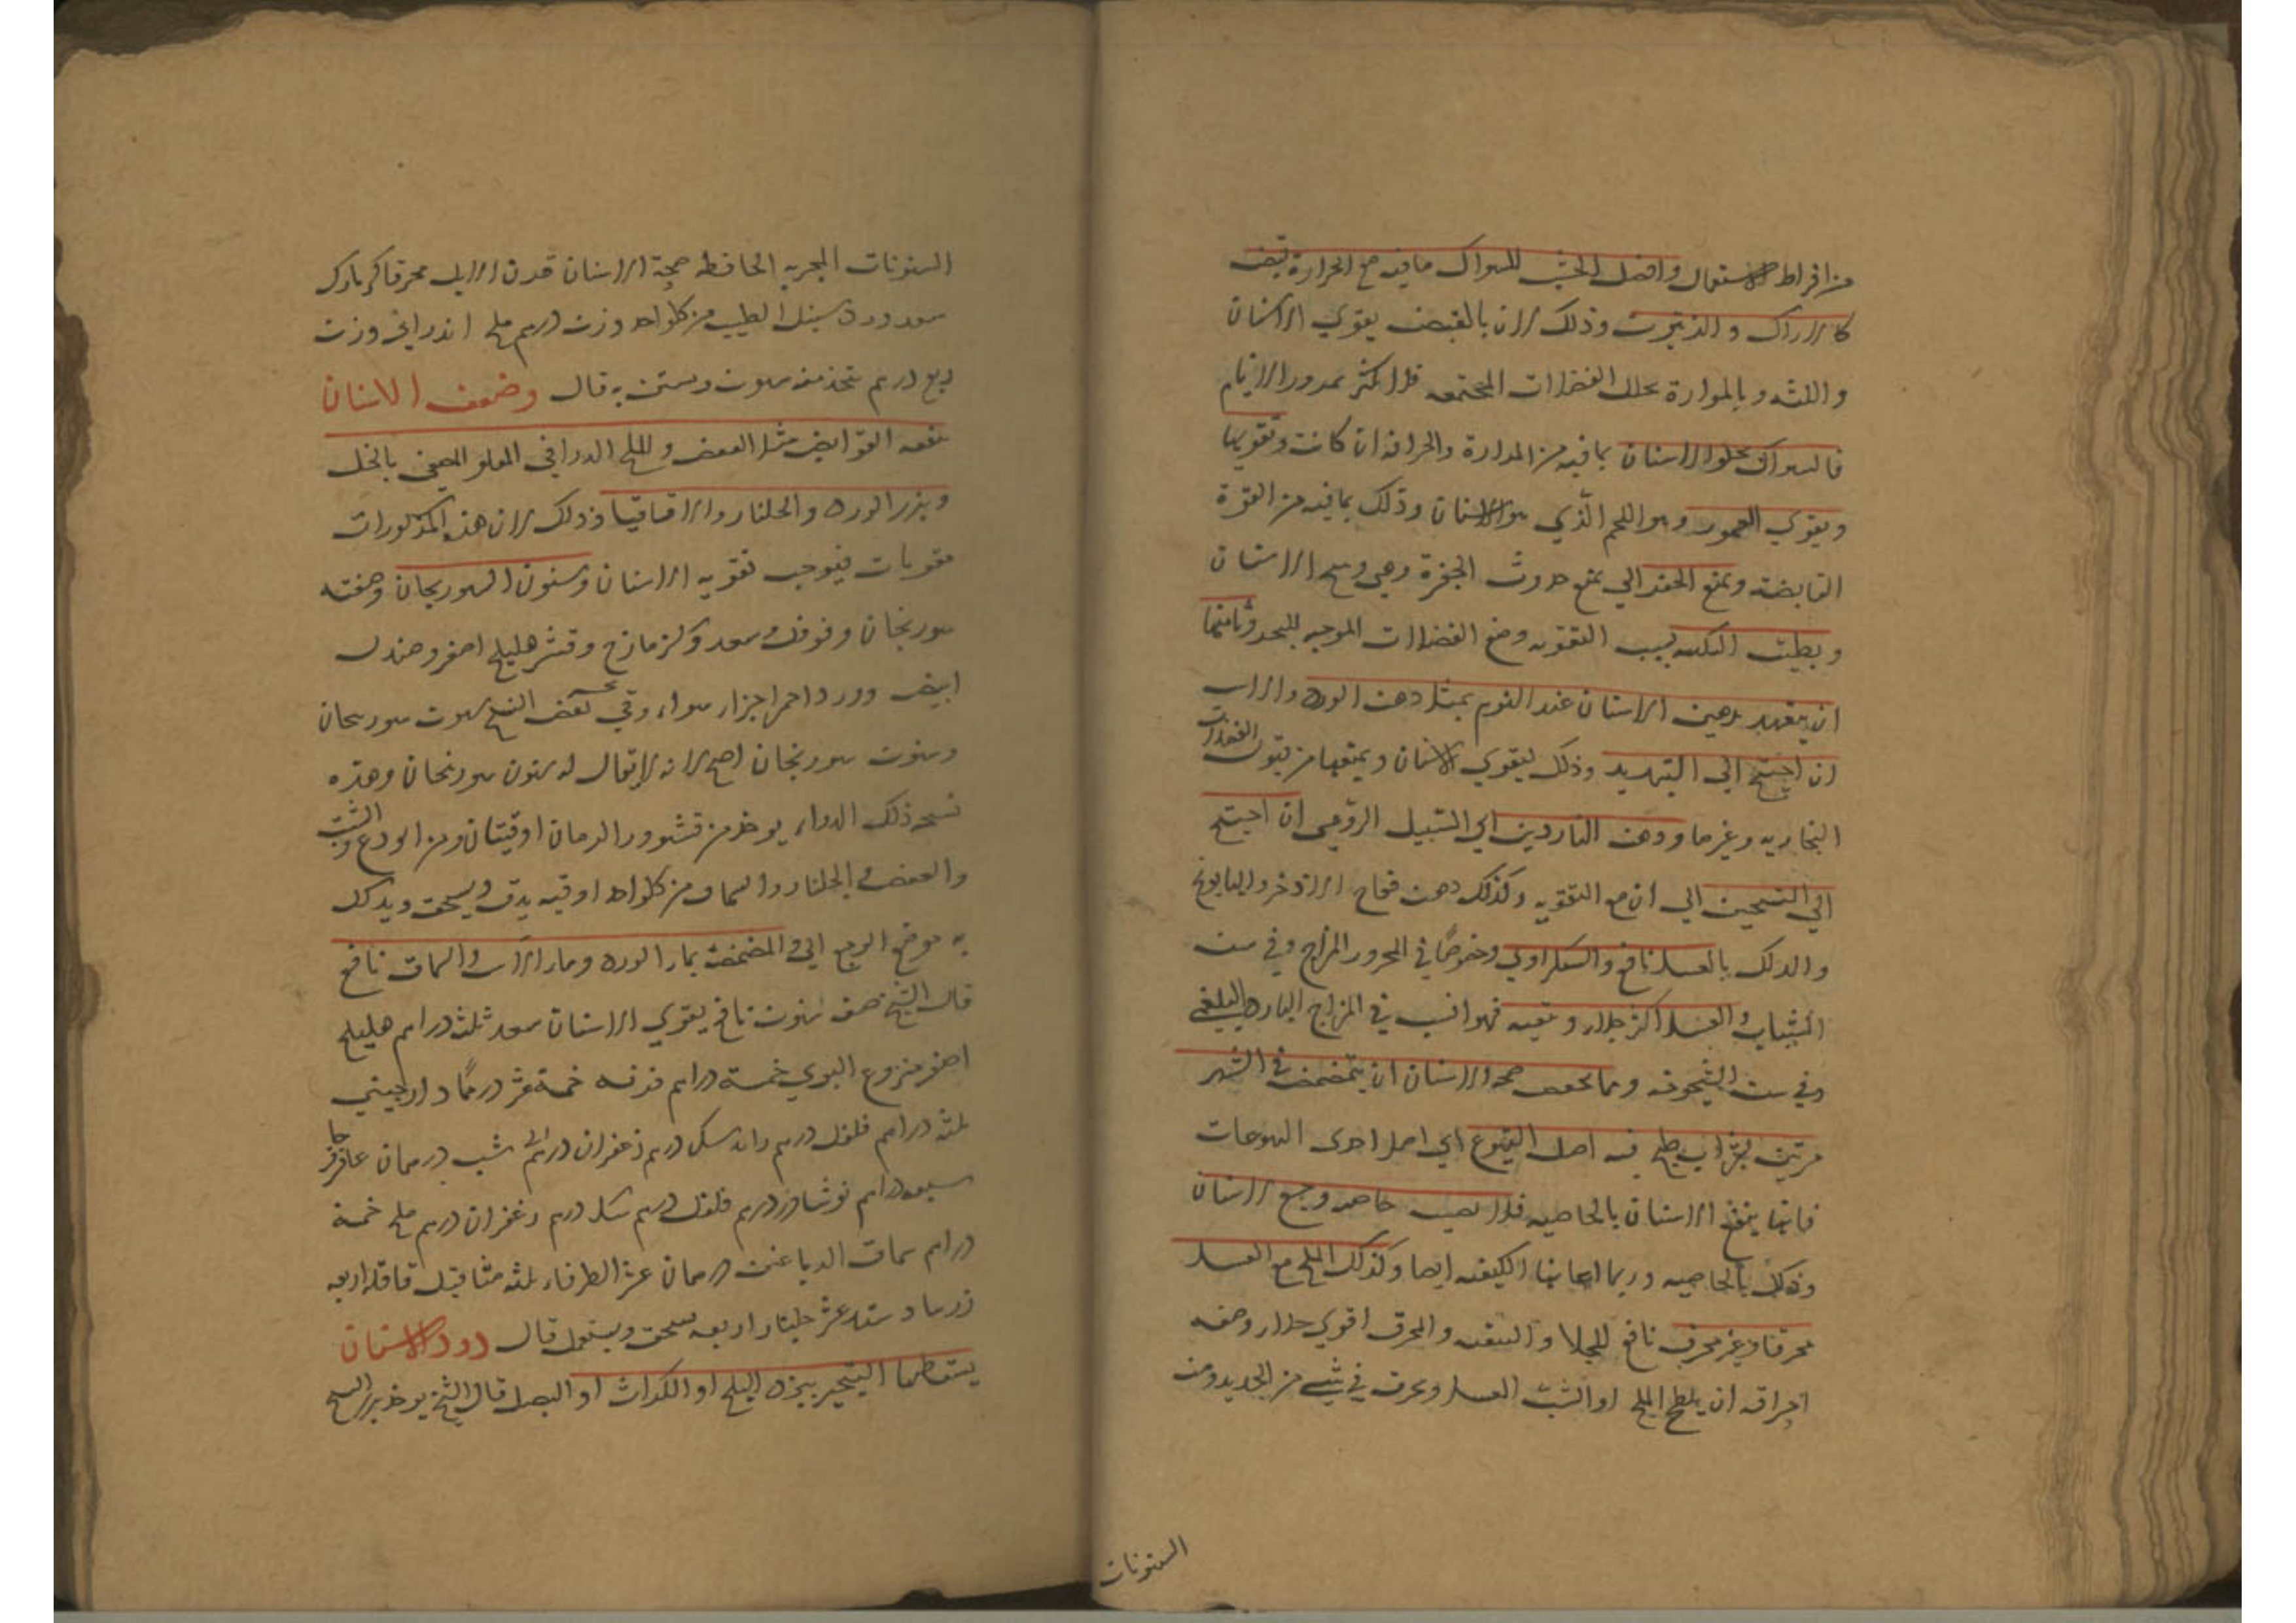 من افراط الاستعمال وافضل الخشب للسواك ما فيه مع المرارة قبض
كالاراك والزيتون وذلك لان بالقبض يقوي الاسنان
واللثه وبالمرارة يحلل الفضلات المجتمعه فلا تكثر بمرور الايام
فالسواك يجلو الاسنان بما فيه من المرارة والحرافه ان كانت وتقويها
ويقوي العمور وهو اللحم الذي هو الاسنان وذلك بما فيه من القوة
القابضه ويمنع الحفر الي يمنع حدوث الحفرة وهي وسخ الاسنان
ويطيب النكهه بسبب التقويه ومنع الفضلات الموجبه للبخر وثانيها
ان يتعهد بدهن الاسنان عند النوم بمثل دهن الورد والاس
ان احتيج الي التبريد وذلك ليقوي الاسنان ويمنعها من قبول الفضلات
البخاريه وغيرها ودهن الناردين اي السنبل الرومي ان احتيج
الي التسخين الي ان مع التقويه وكذلك دهن فقاح الاذخر والبابونج
والدلك بالعسل نافع والسكر اولي وخصوصًا في المحرور المزاج وفي سن
الشباب والعسل اكثر جلاء وتنقيه فهو انسب في المزاج البارد البلغمي
وفي سن الشيخوخه ومما يحفظ صحه الاسنان ان يتمضمض في الشهر
مرتين بشراب طبخ فيه اصل اليتوع اي اصل احدى اليتوعات
فانها ينفع الاسنان بالخاصيه فلا يصيب صاحبه وجع الاسنان
وذلك بالخاصيه وربما اعانها الكيفيه ايضا وكذلك الملح مع العسل
محرقا وغير محرق نافع للجلا والتنقيه والمحرق اقوي جلاء وصفه
احراقه ان يلطخ الملح او الشب العسل ويحرق في شيء من الحديد ومن
السنونات
السنونات المجربه الحافظه صحة الاسنان قرن الايل محرقا كزمازك
سعد ورد سنبل الطيب من كل واحد وزن درهم ملح اندراني وزن
ربع درهم يتخذ منه سنون ويستن به قال وضعف الاسنان
ينفعه القوابض مثل العفص والملح الدراني المقلو المطفي بالخل
وبزر الورد والجلنار والاقاقيا وذلك لان هذه المذكورات
مقويات فيوجب تقويه الاسنان وسنون السورنجان وصفته
سورنجان وفوفل وسعد وكزمازج وقشر هليلج اصفر وصندل
ابيض وورد احمر اجزاء سواء وفي بعض النسخ سنون سورنجان
وسنون سورنجان اصح لانه لا يقال له سنون سورنجان وهذه
نسخه ذلك الدواء يوخذ من قشور الرمان اوقيتان ومن الودع والشب
والعفص والجلنار والسماق من كل واحد اوقيه يدق ويسحق ويدلك
به موضع الوجع اي والمضمضة بماء الورد وماء الاس والسماق نافع
قال الشيخ صفه سنون نافع يقوي الاسنان سعد ثلث دراهم هليلج
اصفر منزوع النوي خمسة دراهم قرفه خمسة عشر درهمًا دارجيني
ثلثه دراهم فلفل درهم دانه سك درهم زعفران درهم شب درهمان عاقرقرحا
سبعه دراهم نوشادر درهم فلفل درهم سك درهم زعفران درهم ملح خمسة
دراهم سماق الدباغين درهمان ثمر الطرفاء ثلثه مثاقيل قاقله اربعه
زرنباد سته عشر جلنار اربعه يسحق ويستعمل قال دود الاسنان
يسقطها التبخير ببزر البنج او الكراث او البصل قال الشيخ يوخذ بزر البنج